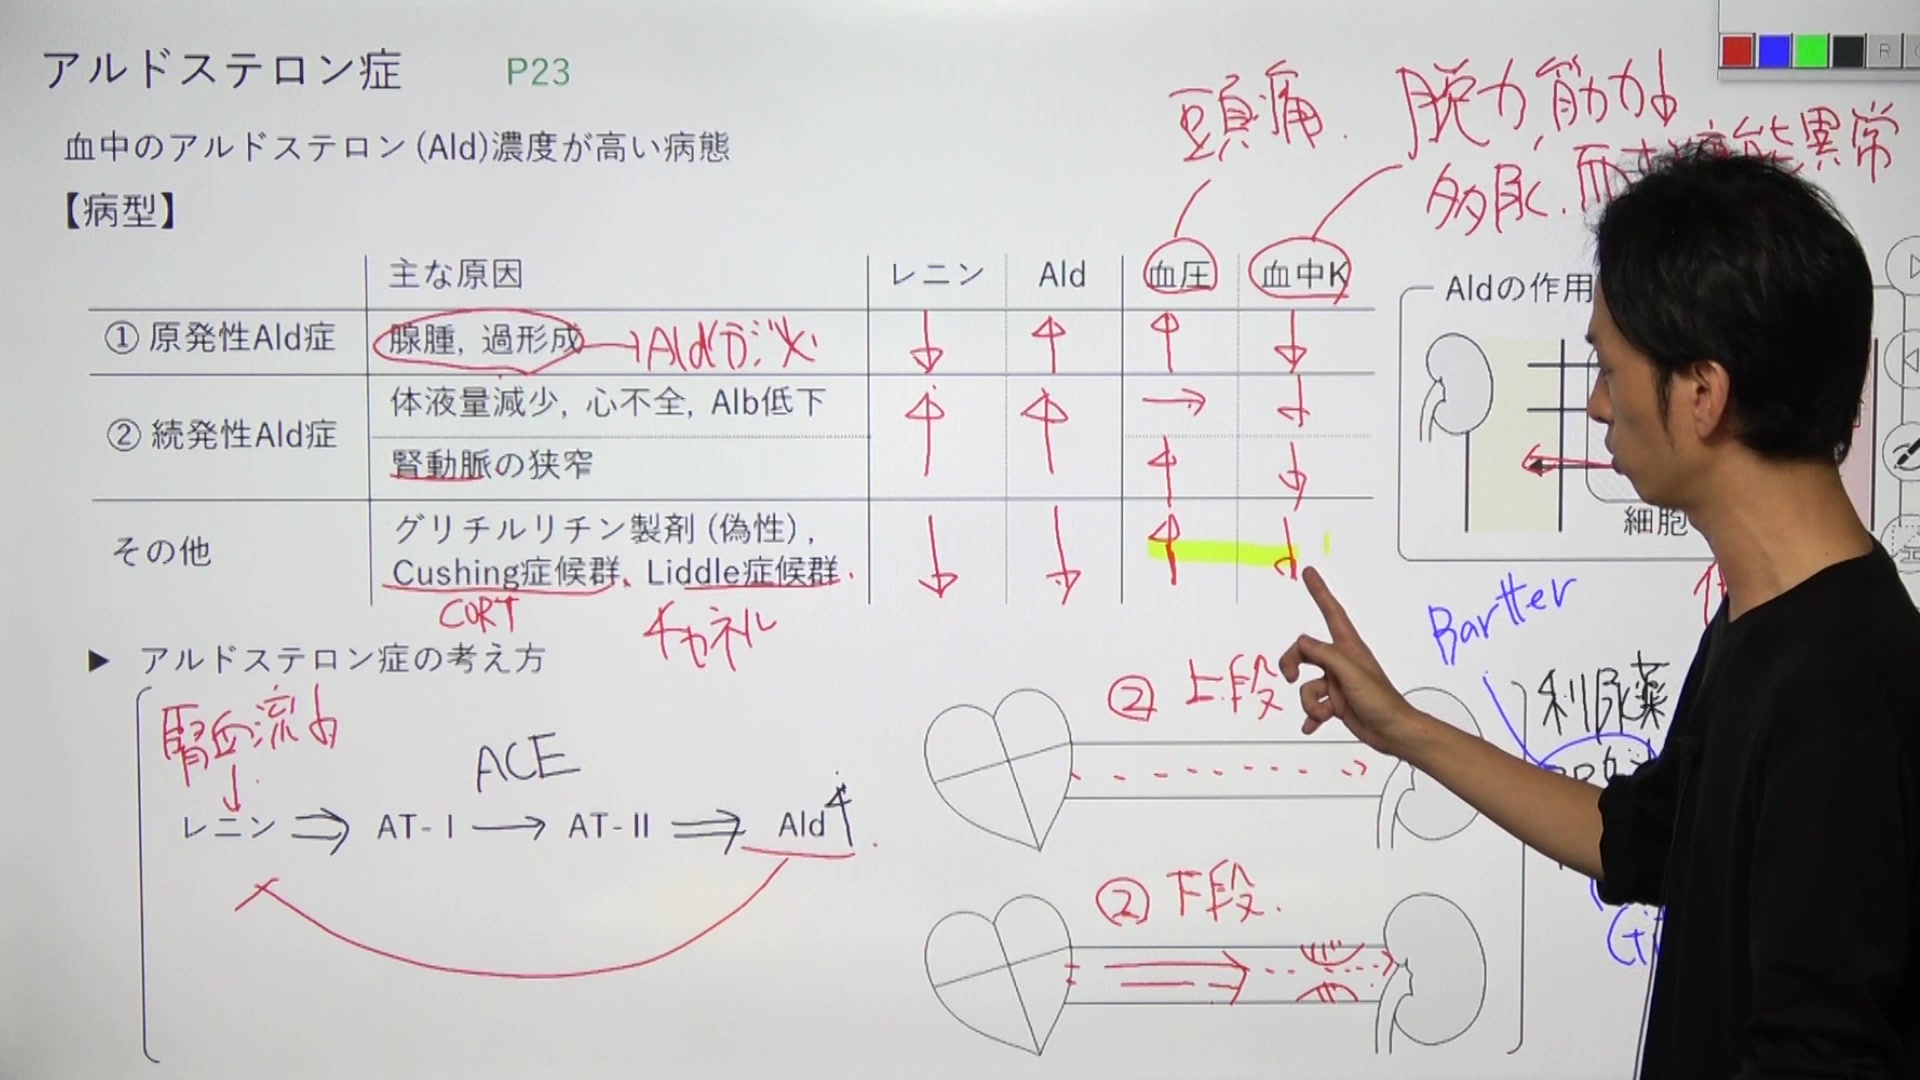 アルドステロン症 P23
血中のアルドステロン(Ald)濃度が高い病態
【病型】
頭痛. 脱力, 筋力↓
多尿. 能異常
主な原因 レニン Ald 血圧 血中K
① 原発性Ald症 腺腫, 過形成 → Ald ↓ ↑ ↑ ↓
② 続発性Ald症
体液量減少, 心不全, Alb低下 ↑ ↑ → ↓
腎動脈の狭窄 ↑ ↓
その他
グリチルリチン製剤(偽性),
Cushing症候群、Liddle症候群. ↓ ↓ ↑ ↓
CORT チャネル
Aldの作用
細胞
▶ アルドステロン症の考え方
腎血流↓
↓
ACE
レニン ⇒ AT-I → AT-II ⇒ Ald↑
② 上段
② 下段.
Bartter
利尿薬
R